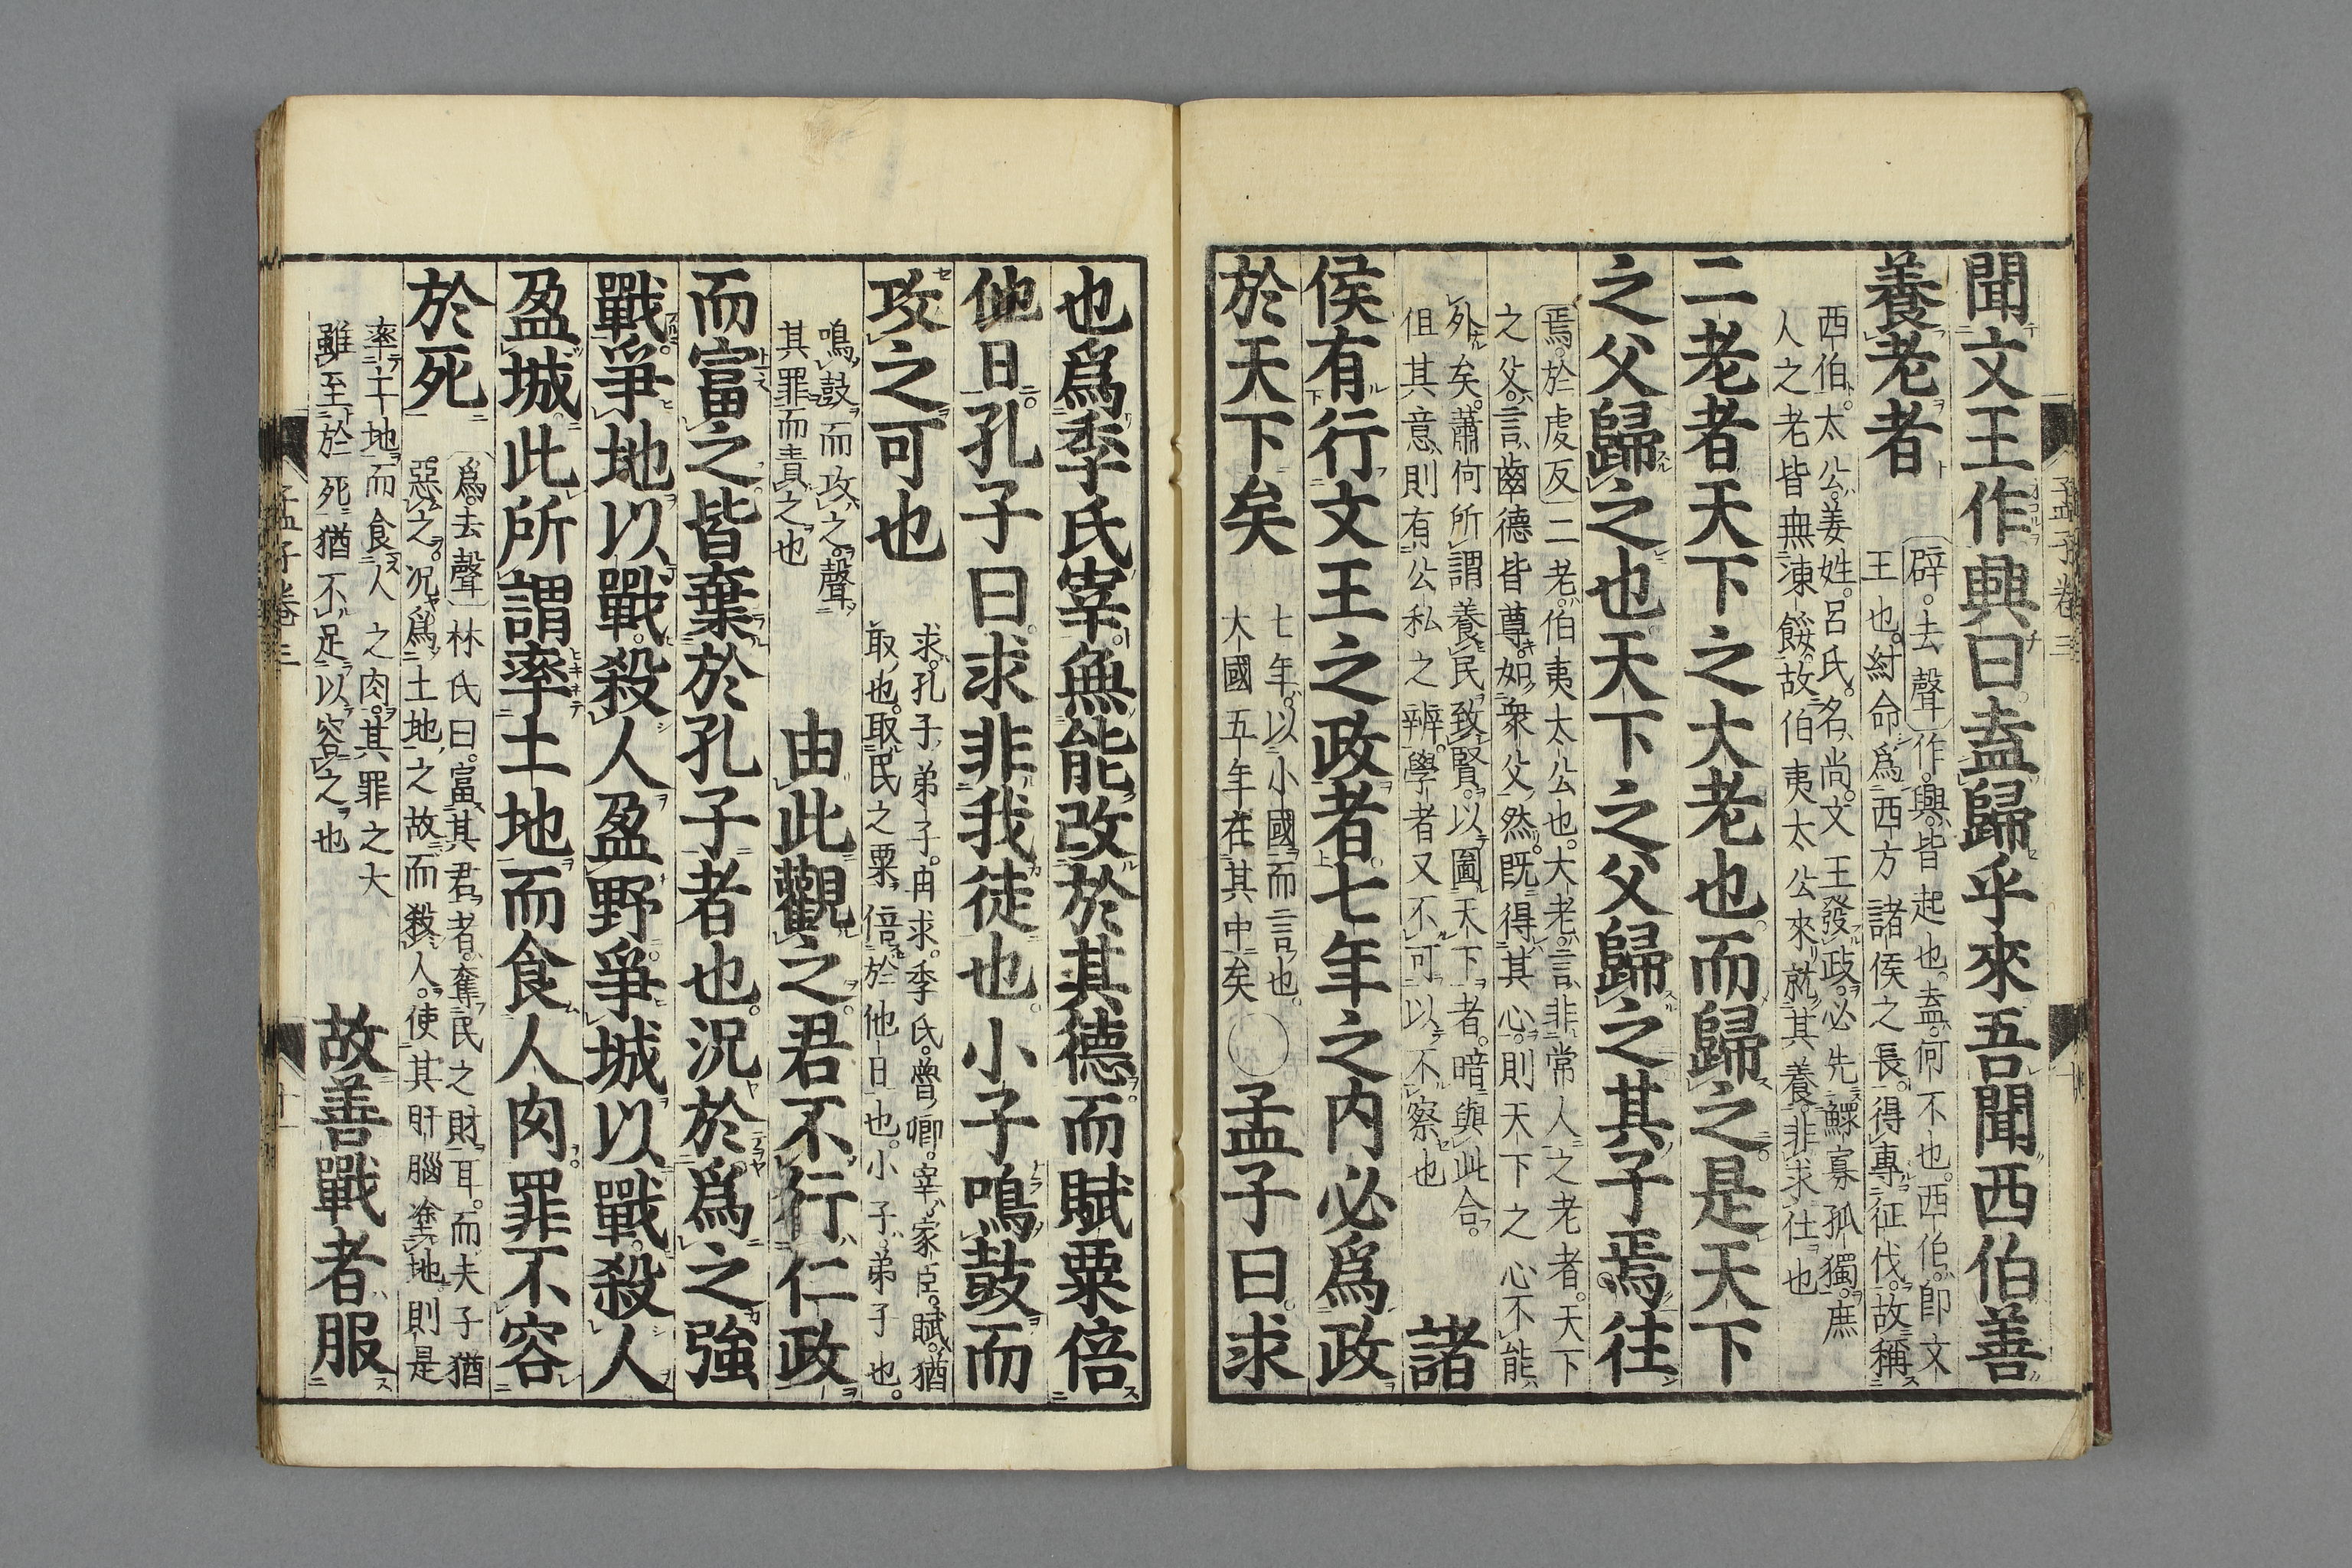 聞文王作興曰盍歸乎來吾聞西伯善
養老者
辟。去聲作。興。皆起也。盍。何不也。西伯。卽文
王也。紂命爲西方諸侯之長。得專征伐。故稱
西伯。太公。姜姓。呂氏。名尚。文王發政。必先鰥寡孤獨。庶
人之老皆無凍餒。故伯夷太公來就其養。非求仕也
二老者天下之大老也而歸之是天下
之父歸之也天下之父歸之其子焉往
焉。於虔反二老。伯夷太公也。大老。言非常人之老者。天下
之父。言齒德皆尊。如衆父然。既得其心。則天下之心不能
外矣。蕭何所謂養民致賢。以圖天下者。暗與此合。
但其意則有公私之辨。學者又不可以不察也
諸
侯有行文王之政者七年之內必爲政
於天下矣
七年。以小國而言也。
大國五年在其中矣
○孟子曰求
孟子卷三
十
也爲季氏宰無能改於其德而賦粟倍
他日孔子曰求非我徒也小子鳴鼓而
攻之可也
求。孔子弟子。冉求。季氏。魯卿。宰。家臣。賦。猶
取也。取民之粟倍於他日也。小子。弟子也。
鳴鼓而攻之。聲
其罪而責之也
由此觀之君不行仁政
而富之皆棄於孔子者也況於爲之強
戰爭地以戰殺人盈野爭城以戰殺人
盈城此所謂率土地而食人肉罪不容
於死
爲。去聲林氏曰。富其君者。奪民之財耳。而夫子猶
惡之。況爲土地之故而殺人。使其肝腦塗地。則是
率土地而食人之肉。其罪之大
雖至於死猶不足以容之也
故善戰者服
孟子卷三
十一